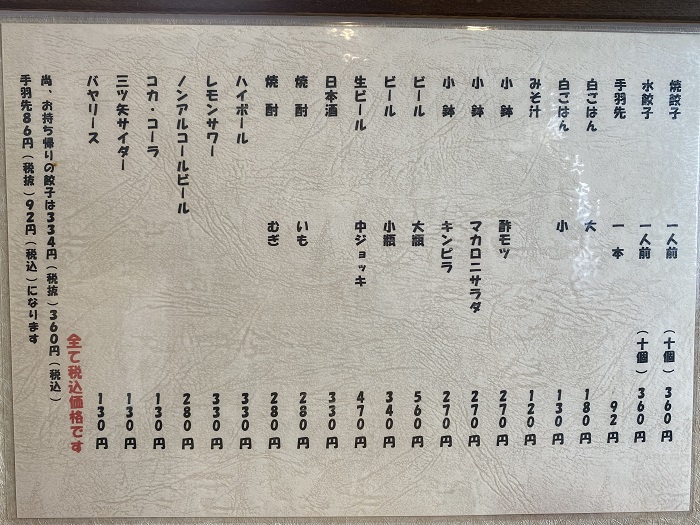 焼餃子 一人前 (十個) 360円
水餃子 一人前 (十個) 360円
手羽先 一本 92円
白ごはん 大 180円
白ごはん 小 130円
みそ汁 120円
小鉢 酢モツ 270円
小鉢 マカロニサラダ 270円
小鉢 キンピラ 270円
ビール 大瓶 560円
ビール 小瓶 340円
生ビール 中ジョッキ 470円
日本酒 330円
焼酎 いも 280円
焼酎 むぎ 280円
ハイボール 330円
レモンサワー 330円
ノンアルコールビール 280円
コカ・コーラ 130円
三ツ矢サイダー 130円
バヤリース 130円
全て税込価格です
尚、お持ち帰りの餃子は334円(税抜)360円(税込)
手羽先86円(税抜)92円(税込)になります